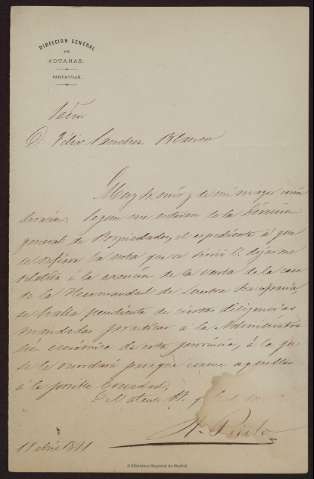 DIRECCION GENERAL
DE
NOTARIAS.
PARTICULAR.
D. Felix Sanchez Blanco
Muy Sr. mio y de mi mayor consi
deracion: Segun me enteran de la Direccion
general de Propiedades, el expediente á que
se refiere la nota que se sirvió V. dejarme
relativa á la exencion de la venta de la casa
de la Hermandad de
se halla pendiente de ciertas diligencias
mandadas practicar a la Administra
cion económica de esta provincia, á la que
se le recordará para que
á la posible brevedad.
11 Abril 1871
© Biblioteca Regional de Madrid